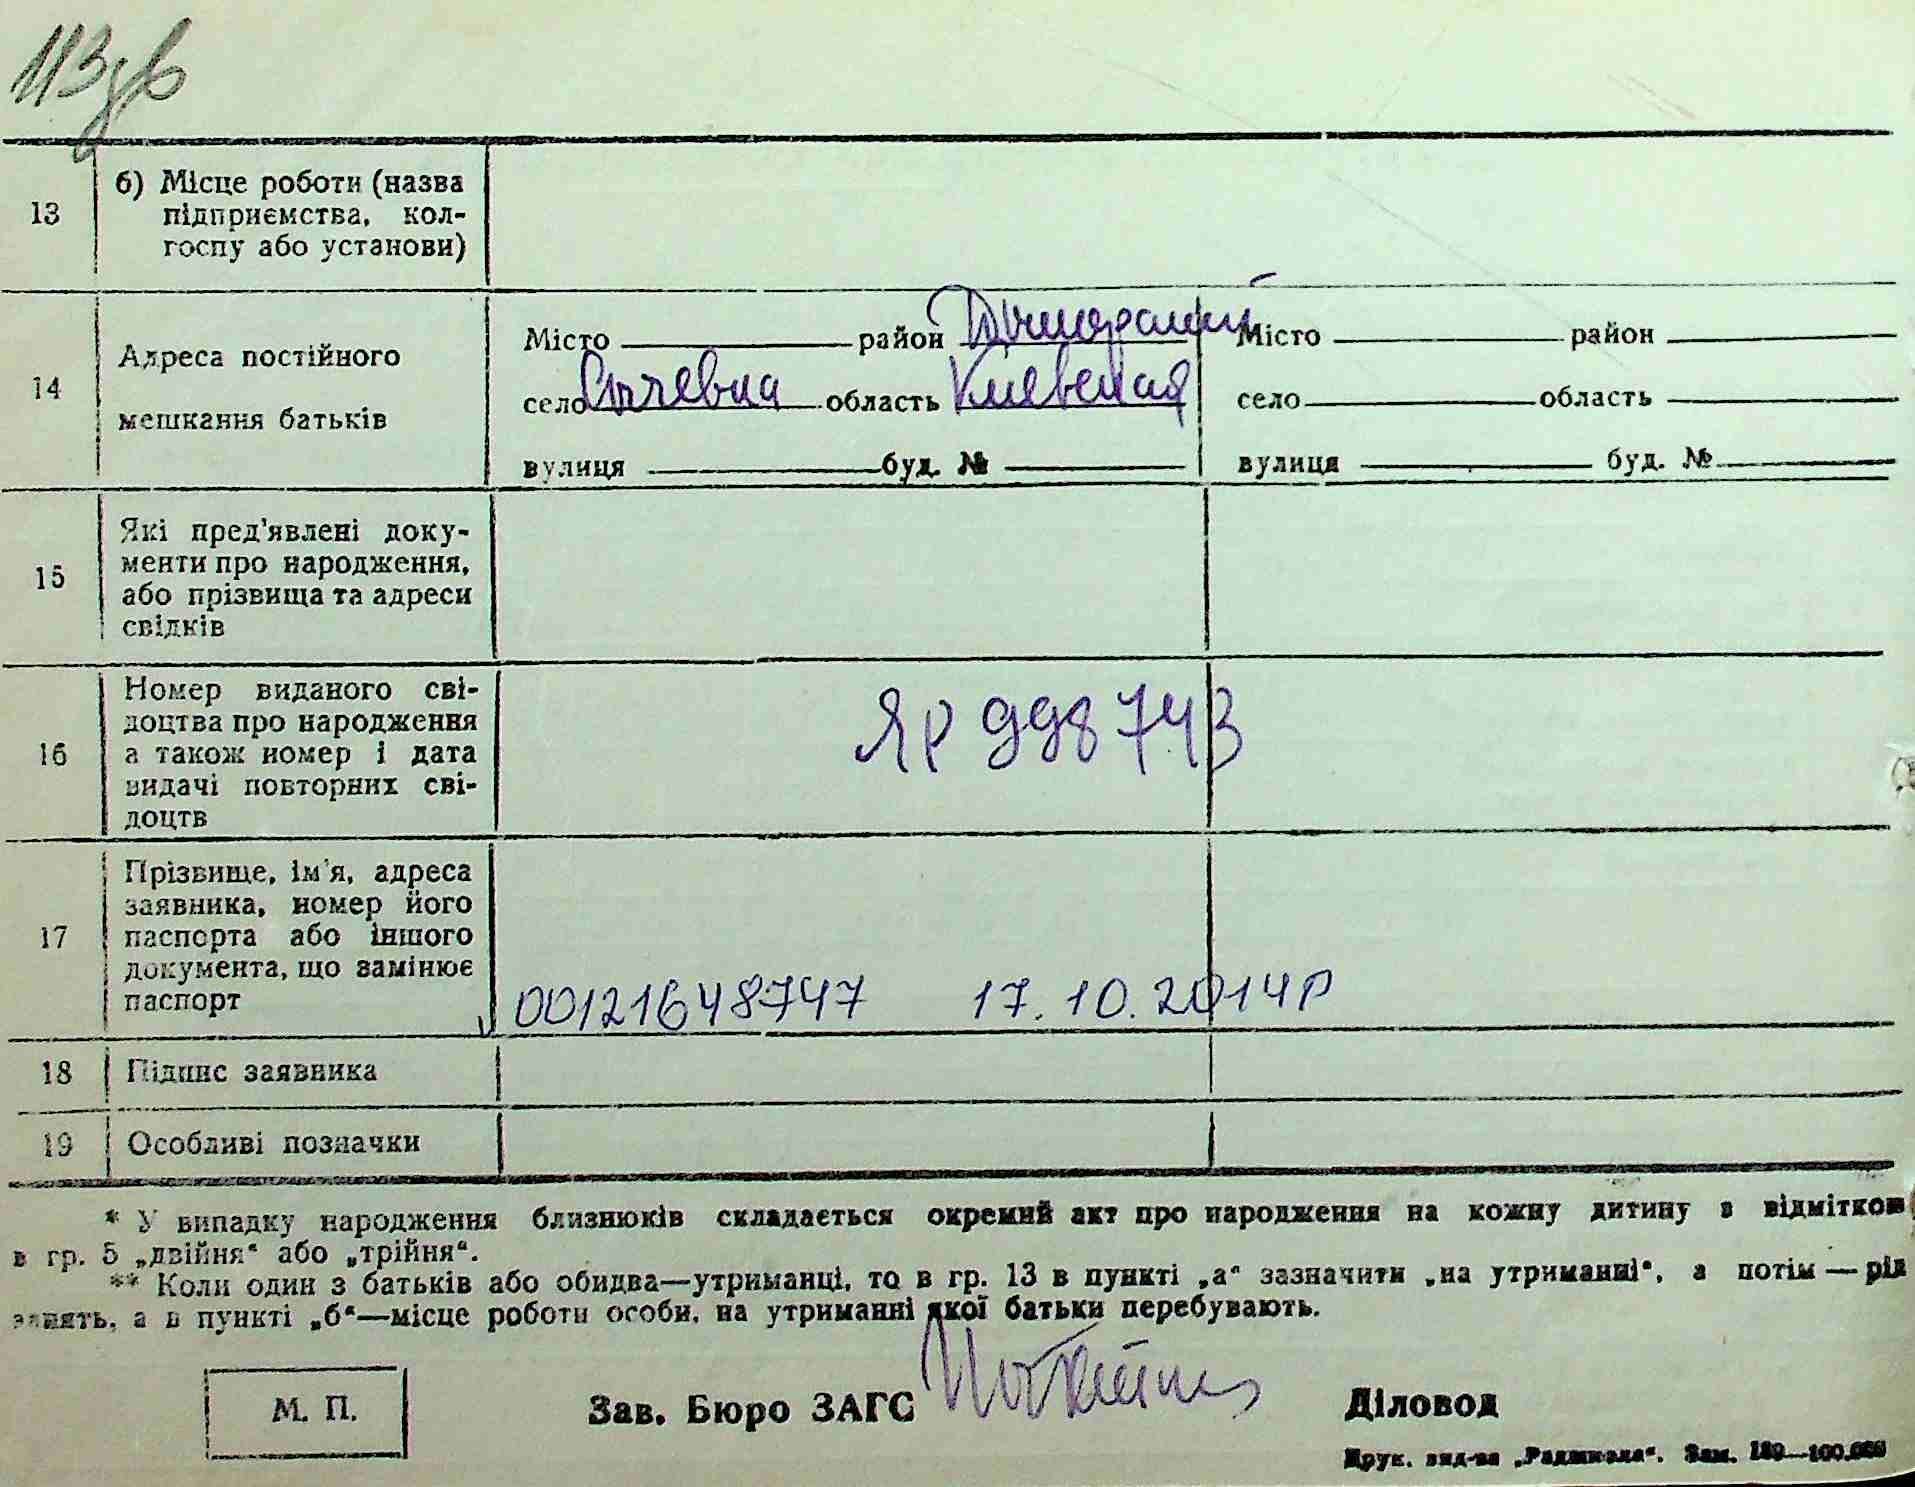 113 зв
13 б) Місце роботи (назва
підприємства, кол-
госпу або установи)
14 Адреса постійного
мешкання батьків
Місто район Дымерский
село Сычевка область Киевская
вулиця буд. №
Місто район
село область
вулиця буд. №
15 Які пред'явлені доку-
менти про народження,
або прізвища та адреси
свідків
16 Номер виданого сві-
доцтва про народження
а також номер і дата
видачі повторних сві-
доцтв
ЯР 998743
17 Прізвище, ім'я, адреса
заявника, номер його
паспорта або іншого
документа, що замінює
паспорт
00121648747 17.10.2014р
18 Підпис заявника
19 Особливі позначки
* У випадку народження близнюків складається окремий акт про народження на кожну дитину з відміткою
в гр. 5 „двійня“ або „трійня“.
** Коли один з батьків або обидва—утриманці, то в гр. 13 в пункті „а“ зазначити „на утриманні“, а потім — рід
занять, а в пункті „б“—місце роботи особи, на утриманні якої батьки перебувають.
М. П.
Зав. Бюро ЗАГС
Діловод
Друк. вид-ва „Радшкола“. Зам. 189—100.000